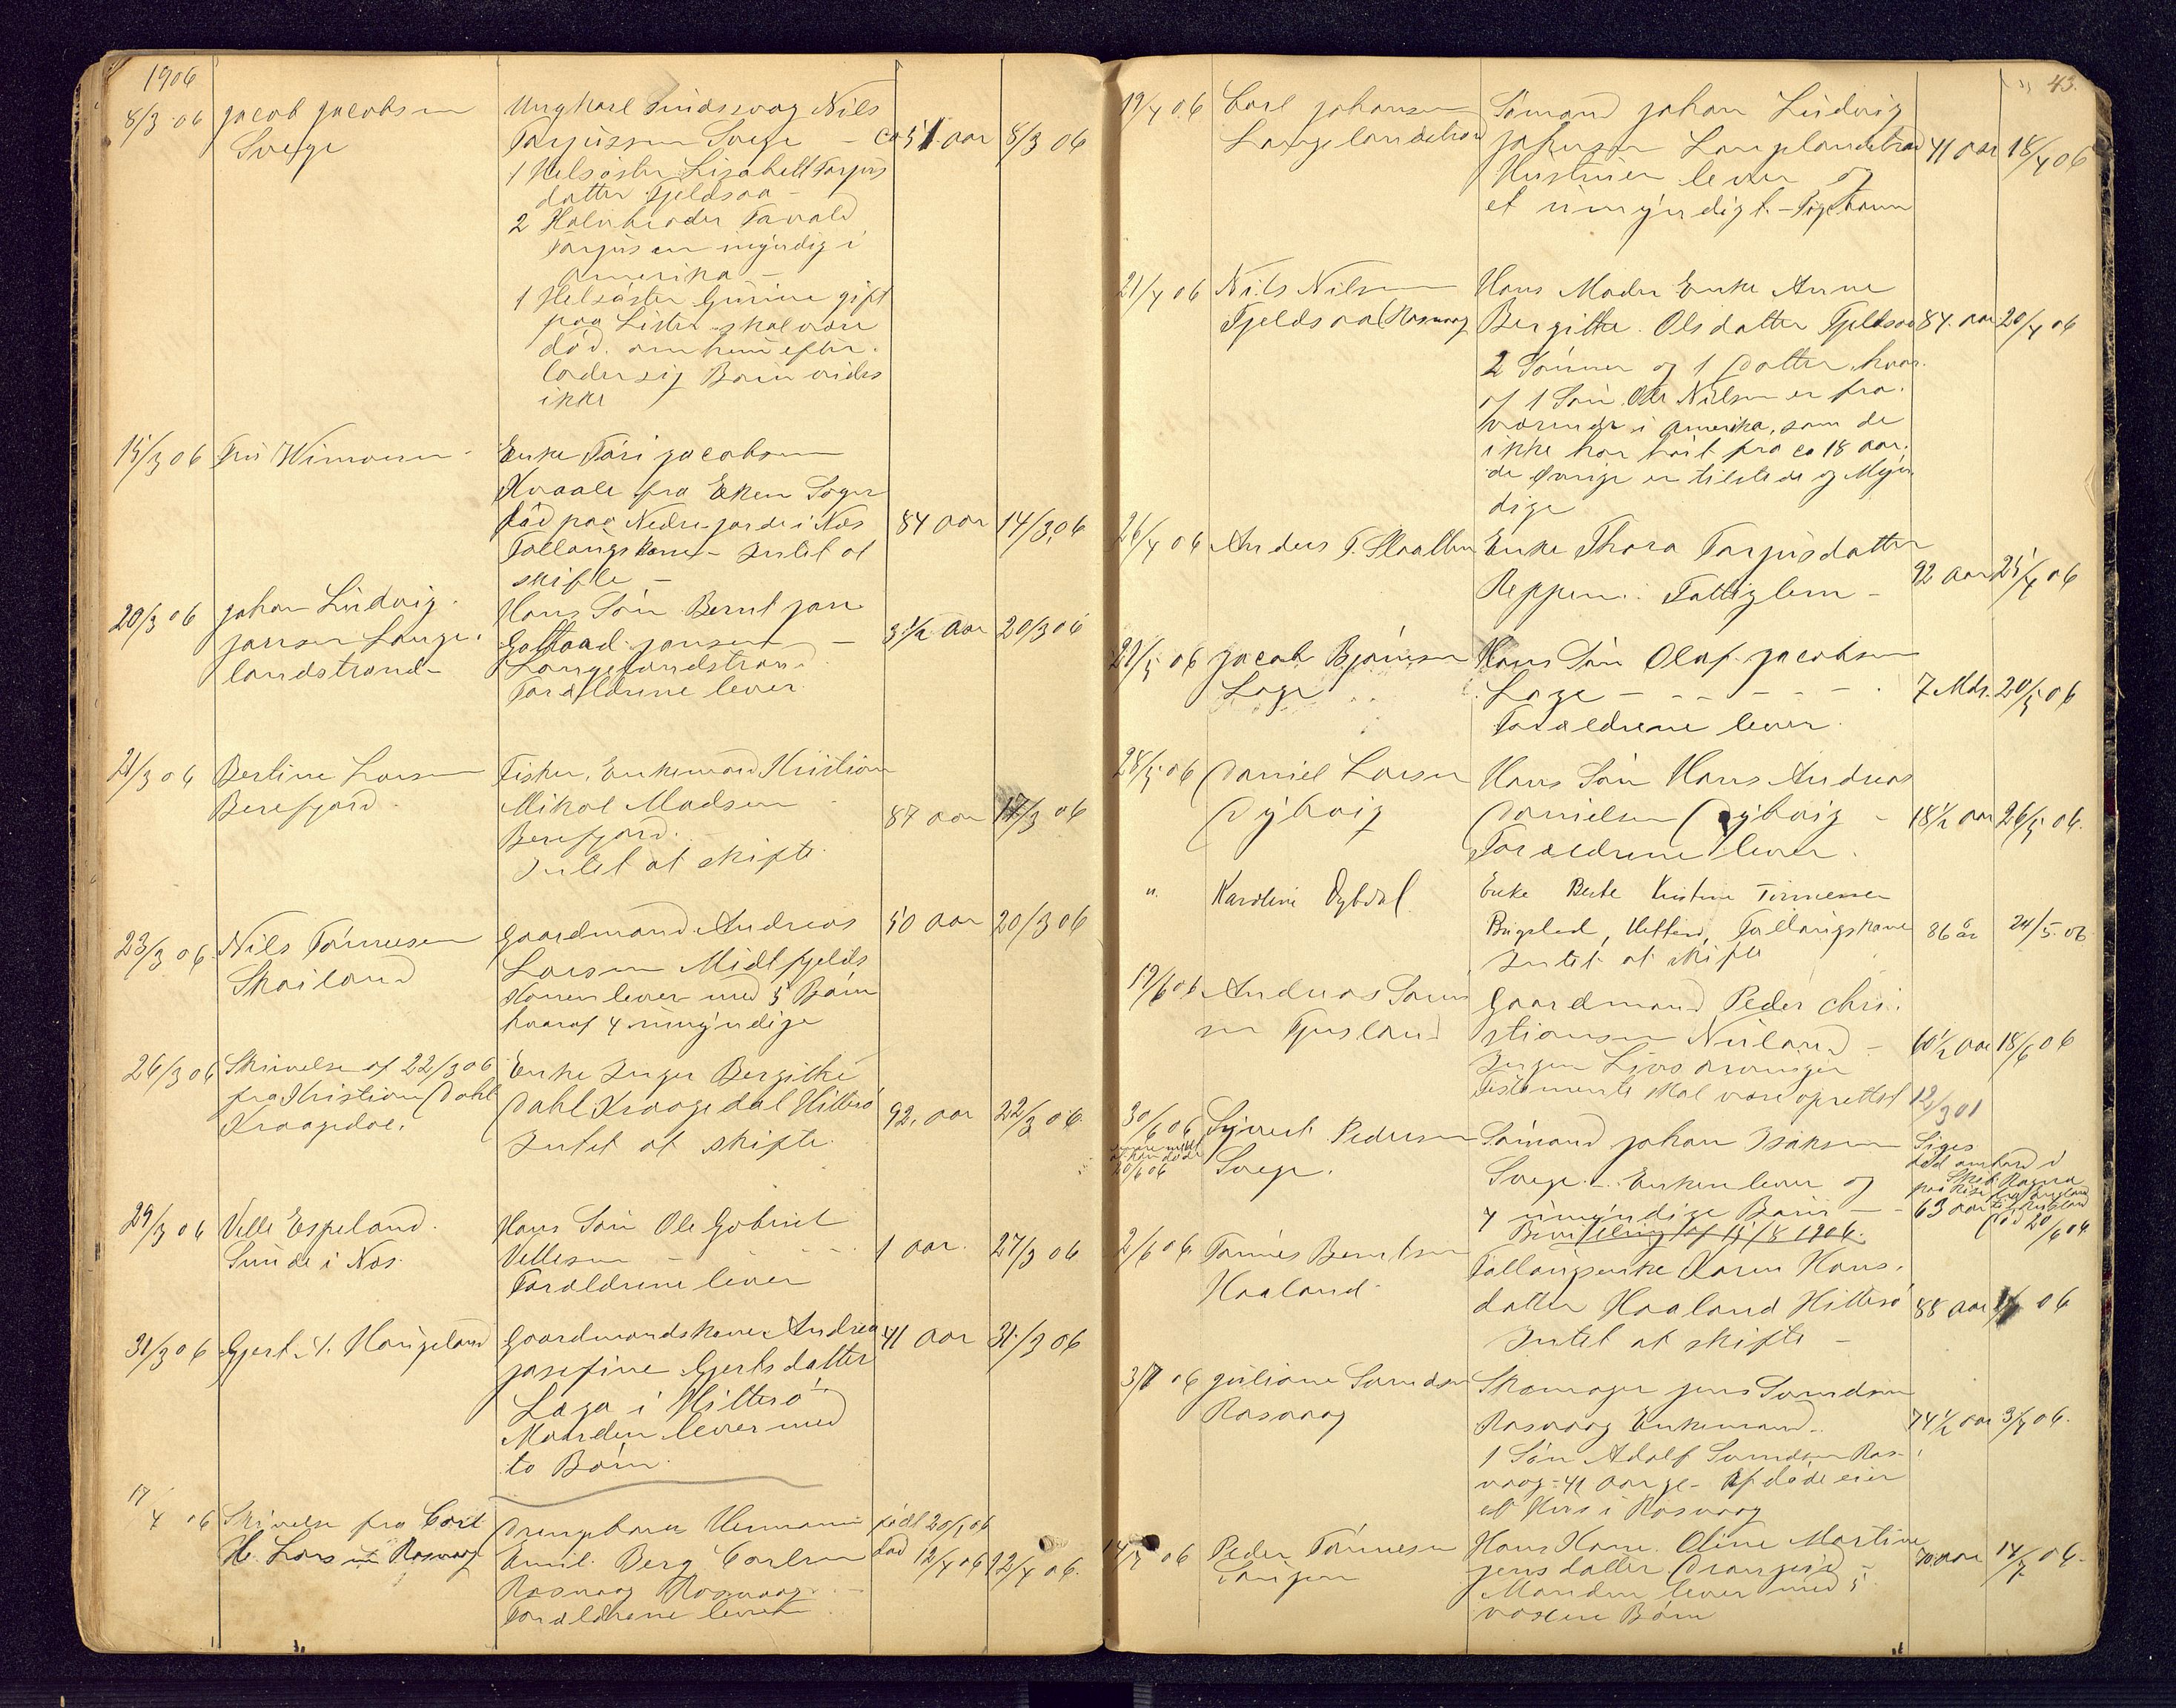 1906
8/3 06 Jacob Jacobsen Ungkarl Nils
Svege Svege — ca 51 aar 8/3 06
1 Helsøster Lisabett Tarjus
datter Fjeldsaa —
2 Halvbroder Tarald
Tarjusen myndig i
Amerika —
1 Helsøster Gurine gift
paa Lister skal være
død. om hun efter-
lader sig Børn vides
ikke
15/3 06 Enke Jacobsen
Kvaale fra Eken Sogn
død paa Nedre i Nes
84 aar 14/3 06
Fattigkone — Intet at
skifte —
20/3 06 Johan Ludvig Hans Søn Bernt Jan
Jansen Lange- Jansen — 3½ aar 20/3 06
landstrand — Langelandstrand
Forældrene lever.
21/3 06 Bertine Larsen Fisker, Enkemand Kristian
Berefjord Mikal Madsen
87 aar 17/3 06
Berefjord.
Intet at skifte.
23/3 06 Nils Tønnesen Gaardmand Andreas 50 aar 20/3 06
Skailand Larsen Midtfjelds
Konen lever med 5 Børn
hvoraf 4 umyndige
26/3 06 Skrivelse af 22/3 06 Enke Inger Bergitte
fra Kristian Dahl Dahl Kraagedal Hitterø 92. aar 22/3 06.
Kraagedal. Intet at skifte.
29/3 06 Velle Espeland. Hans Søn Ole Gabriel
Sunde i Nes. Vellesen — 1 aar. 27/3 06
Forældrene lever
31/3 06 Gjert A. Haugeland Gaardmandskone Andrea 41 aar 31/3 06
Josefine Gjertsdatter
Lega i Hitterø
Manden lever med
to Børn.
17/4 06 Skrivelse fra Carl Drengebarn Hermann født 20/1 06
H. Larsen Rasvaag Emil Berg Carlsen død 12/4 06 12/4 06.
Rasvaag Rasvaag. —
Forældrene lever
43.
19/4 06 Carl Johansen Sømand Johan Ludvig
Langelandstrand Johnsen Langelandstrand 41 aar 18/4 06
Hustruen lever og
et umyndigt — Pigebarn
21/4 06 Nils Nilsen Hans Moder Enke Anne
Fjeldsaa Rasvaag Bergitte Olsdatter Fjeldsaa 84. aar 20/4 06
2 Sønner og 1 Datter, hvor-
af 1 Søn Ole Nilsen er fra-
værende i Amerika, som de
ikke har hørt fra ca 18 aar,
de øvrige er tilstede og Myn
dige
26/4 06 Anders T. Enke Thora Tarjusdatter
Reppen. Fattiglem — 92 aar 25/4 06
21/5 06 Jacob Bjørnsen Hans Søn Olaf Jacobsen
Lega Lega — — — 7 Mdr. 20/5 06
Forældrene lever.
28/5 06 Daniel Larsen Hans Søn Hans Andreas
Dybvig Danielsen Dybvig — 18½ aar 26/5 06.
Forældrene lever.
" Karoline Dybdal. Enke Berte Kristine Tønnesen
Bugsted, Hitterø, Fattigskone 86 år 24/5. 06
Intet at skifte
19/6 06 Andreas Søren Gaardmand Peder Chri-
sen stiansen Nuland — 60½ aar 18/6 06
Ingen Livsarvinger
Testamente skal være oprettet 12/3 01
30/6 06 Syvert Pedersen Sømand Johan Isaksen Siges
Svege. Svege. Enken lever og død ombord i
4 umyndige Børn — 63 aar død 20/6 06
Bevilling af 15/8 1906.
2/6 06 Tønnes Berntsen Fattigsenke Karen Hans-
Haaland datter Haaland Hitterø 88 aar 06
Intet at skifte —
3/7 06 Juliane Svendsen Skomager Jens Svendsen
Rasvaag Rasvaag Enkemand. 74½ aar 3/7 06.
1 Søn Adolf Svendsen Ras-
vaag 41 aar g. — Afdøde eier
et Hus i Rasvaag
14/7 06 Peder Tønnesen Hans Kone Oline Martine
Jensdatter — 70 aar 14/7 06.
Manden lever med 5
voxne Børn